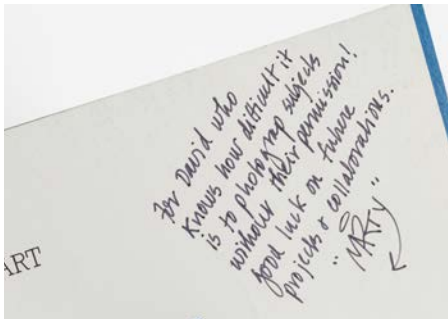 for David who
knows how difficult it
is to photograp subjects
without their permission!
good luck on future
projects & collaborations.
"MARTY"
ART